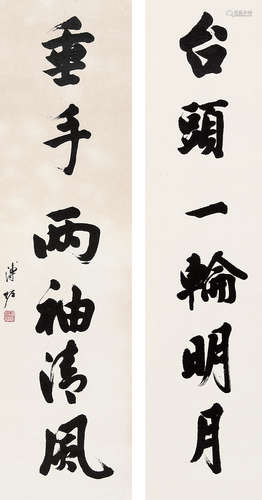 台頭一輪明月
垂手两袖清風
溥佐